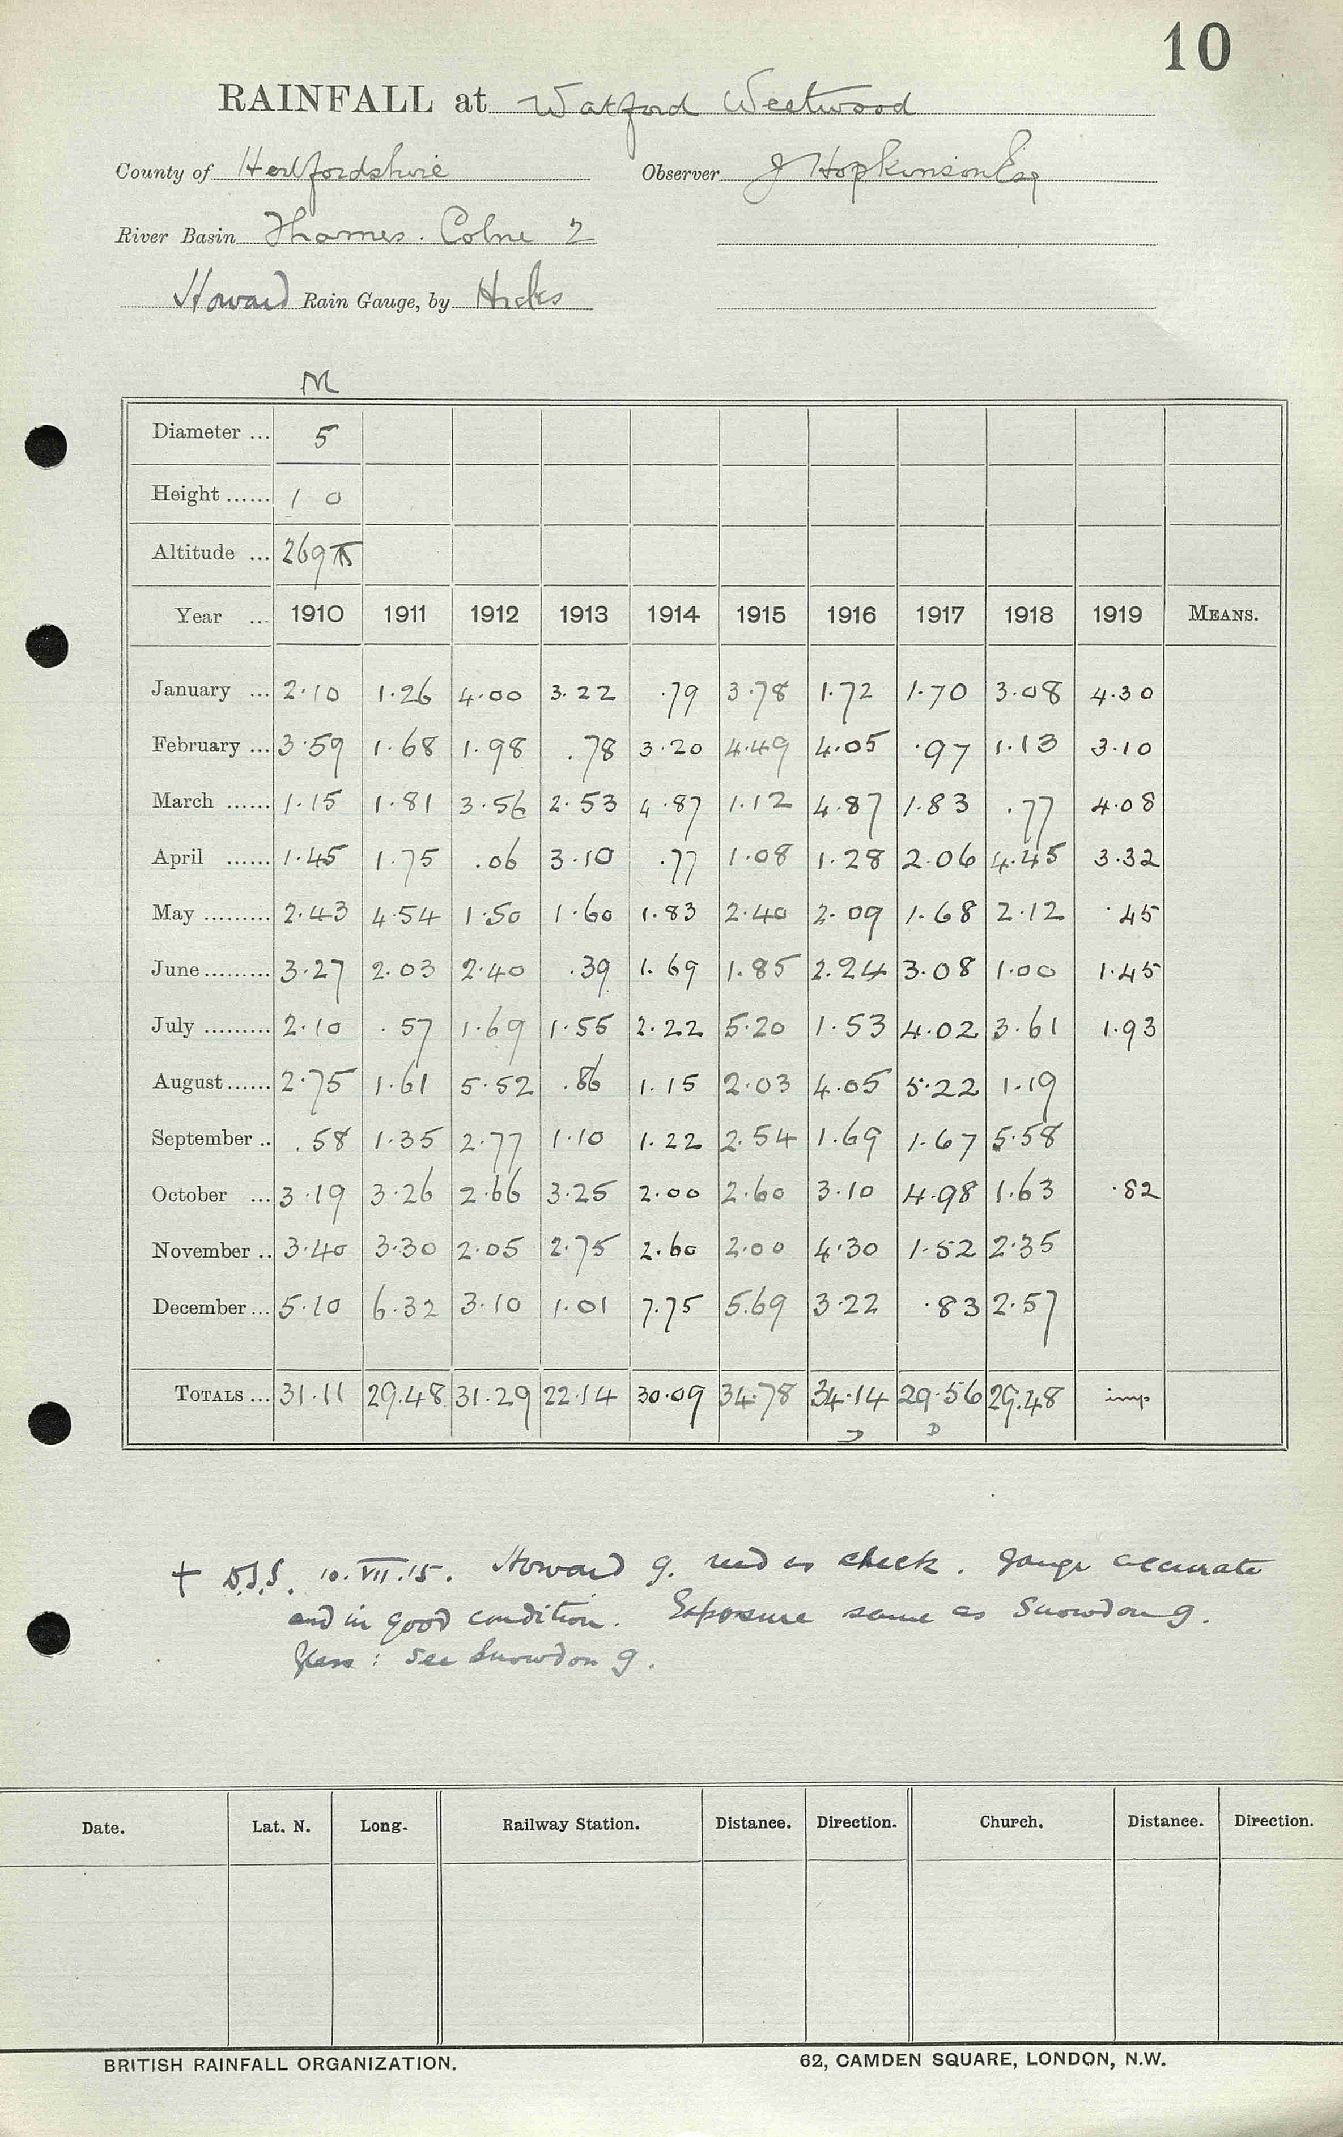 10
RAINFALL at Watford Weetwood
County of Hertfordshire Observer J Hopkinson Esq
River Basin Thames. Colne 2
Howard Rain Gauge, by Hicks
M
Diameter ... 5
Height ...... 1 0
Altitude ... 269 ft
Year ... 1910 1911 1912 1913 1914 1915 1916 1917 1918 1919 MEANS.
January ... 2.10 1.26 4.00 3.22 .79 3.78 1.72 1.70 3.08 4.30
February ... 3.59 1.68 1.98 .78 3.20 4.49 4.05 .97 1.13 3.10
March ...... 1.15 1.81 3.56 2.53 4.87 1.12 4.87 1.83 .77 4.08
April ...... 1.45 1.75 .06 3.10 .77 1.08 1.28 2.06 4.45 3.32
May ......... 2.43 4.54 1.50 1.60 1.83 2.40 2.09 1.68 2.12 .45
June ......... 3.27 2.03 2.40 .39 1.69 1.85 2.24 3.08 1.00 1.45
July ......... 2.10 .57 1.69 1.55 2.22 5.20 1.53 4.02 3.61 1.93
August ...... 2.75 1.61 5.52 .86 1.15 2.03 4.05 5.22 1.19
September .. .58 1.35 2.77 1.10 1.22 2.54 1.69 1.67 5.58
October ... 3.19 3.26 2.66 3.25 2.00 2.60 3.10 4.98 1.63 .82
November .. 3.40 3.30 2.05 2.75 2.60 2.00 4.30 1.52 2.35
December ... 5.10 6.32 3.10 1.01 7.75 5.69 3.22 .83 2.57
TOTALS ... 31.11 29.48 31.29 22.14 30.09 34.78 34.14 29.56 29.48 imp
D
+ 10.VII.15. Howard g. used as check. Gauge accurate
and in good condition. Exposure same as Snowdon g.
Glass : See Snowdon g.
Date. Lat. N. Long. Railway Station. Distance. Direction. Church. Distance. Direction.
BRITISH RAINFALL ORGANIZATION. 62, CAMDEN SQUARE, LONDON, N.W.